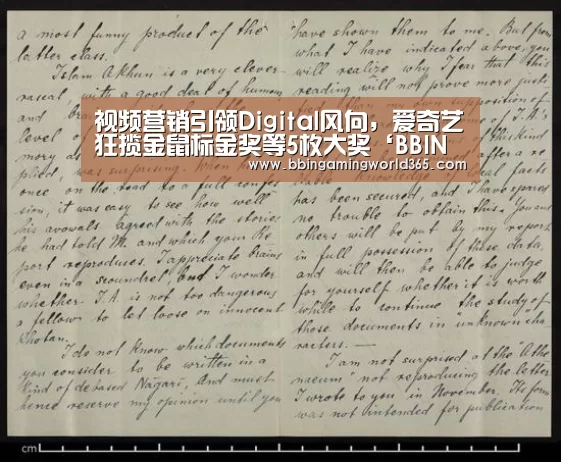 a most funny product of the
latter class.
Islam Akhun is a very clever
rascal, with a good deal of humour
and
level of
mory as
plied, was surprising. When he
once on the road to a full confes
sion, it was easy to see how well
his avowals agreed with the stories
he had told M. and which your Re
port reproduces. I appreciate brains
even in a scoundrel, and I wonder
whether I.A. is not too dangerous
a fellow to let loose on innocent
Khotan.
I do not know which documents
you consider to be written in a
kind of debased Nagari, and must
hence reserve my opinion until you
have shown them to me. But from
what I have indicated above, you
will realize why I fear that this
reading will not prove more justi
than my own supposition of
of I.A.'s
of this kind
after a re
knowledge of local facts
has been secured, and I have spared
no trouble to obtain this. You and
others will be put by my report
in full possession of these data,
and will then be able to judge
for yourself whether it is worth
while to continue the study of
those documents in "unknown" cha
racters. —
I am not surprised at the 'Athe
naeum' not reproducing the letter
I wrote to you in November. Its form
was not intended for publication
视频营销引领Digital风向，爱奇艺
狂揽金鼠标金奖等5枚大奖‘BBIN
www.bbingamingworld365.com
cm